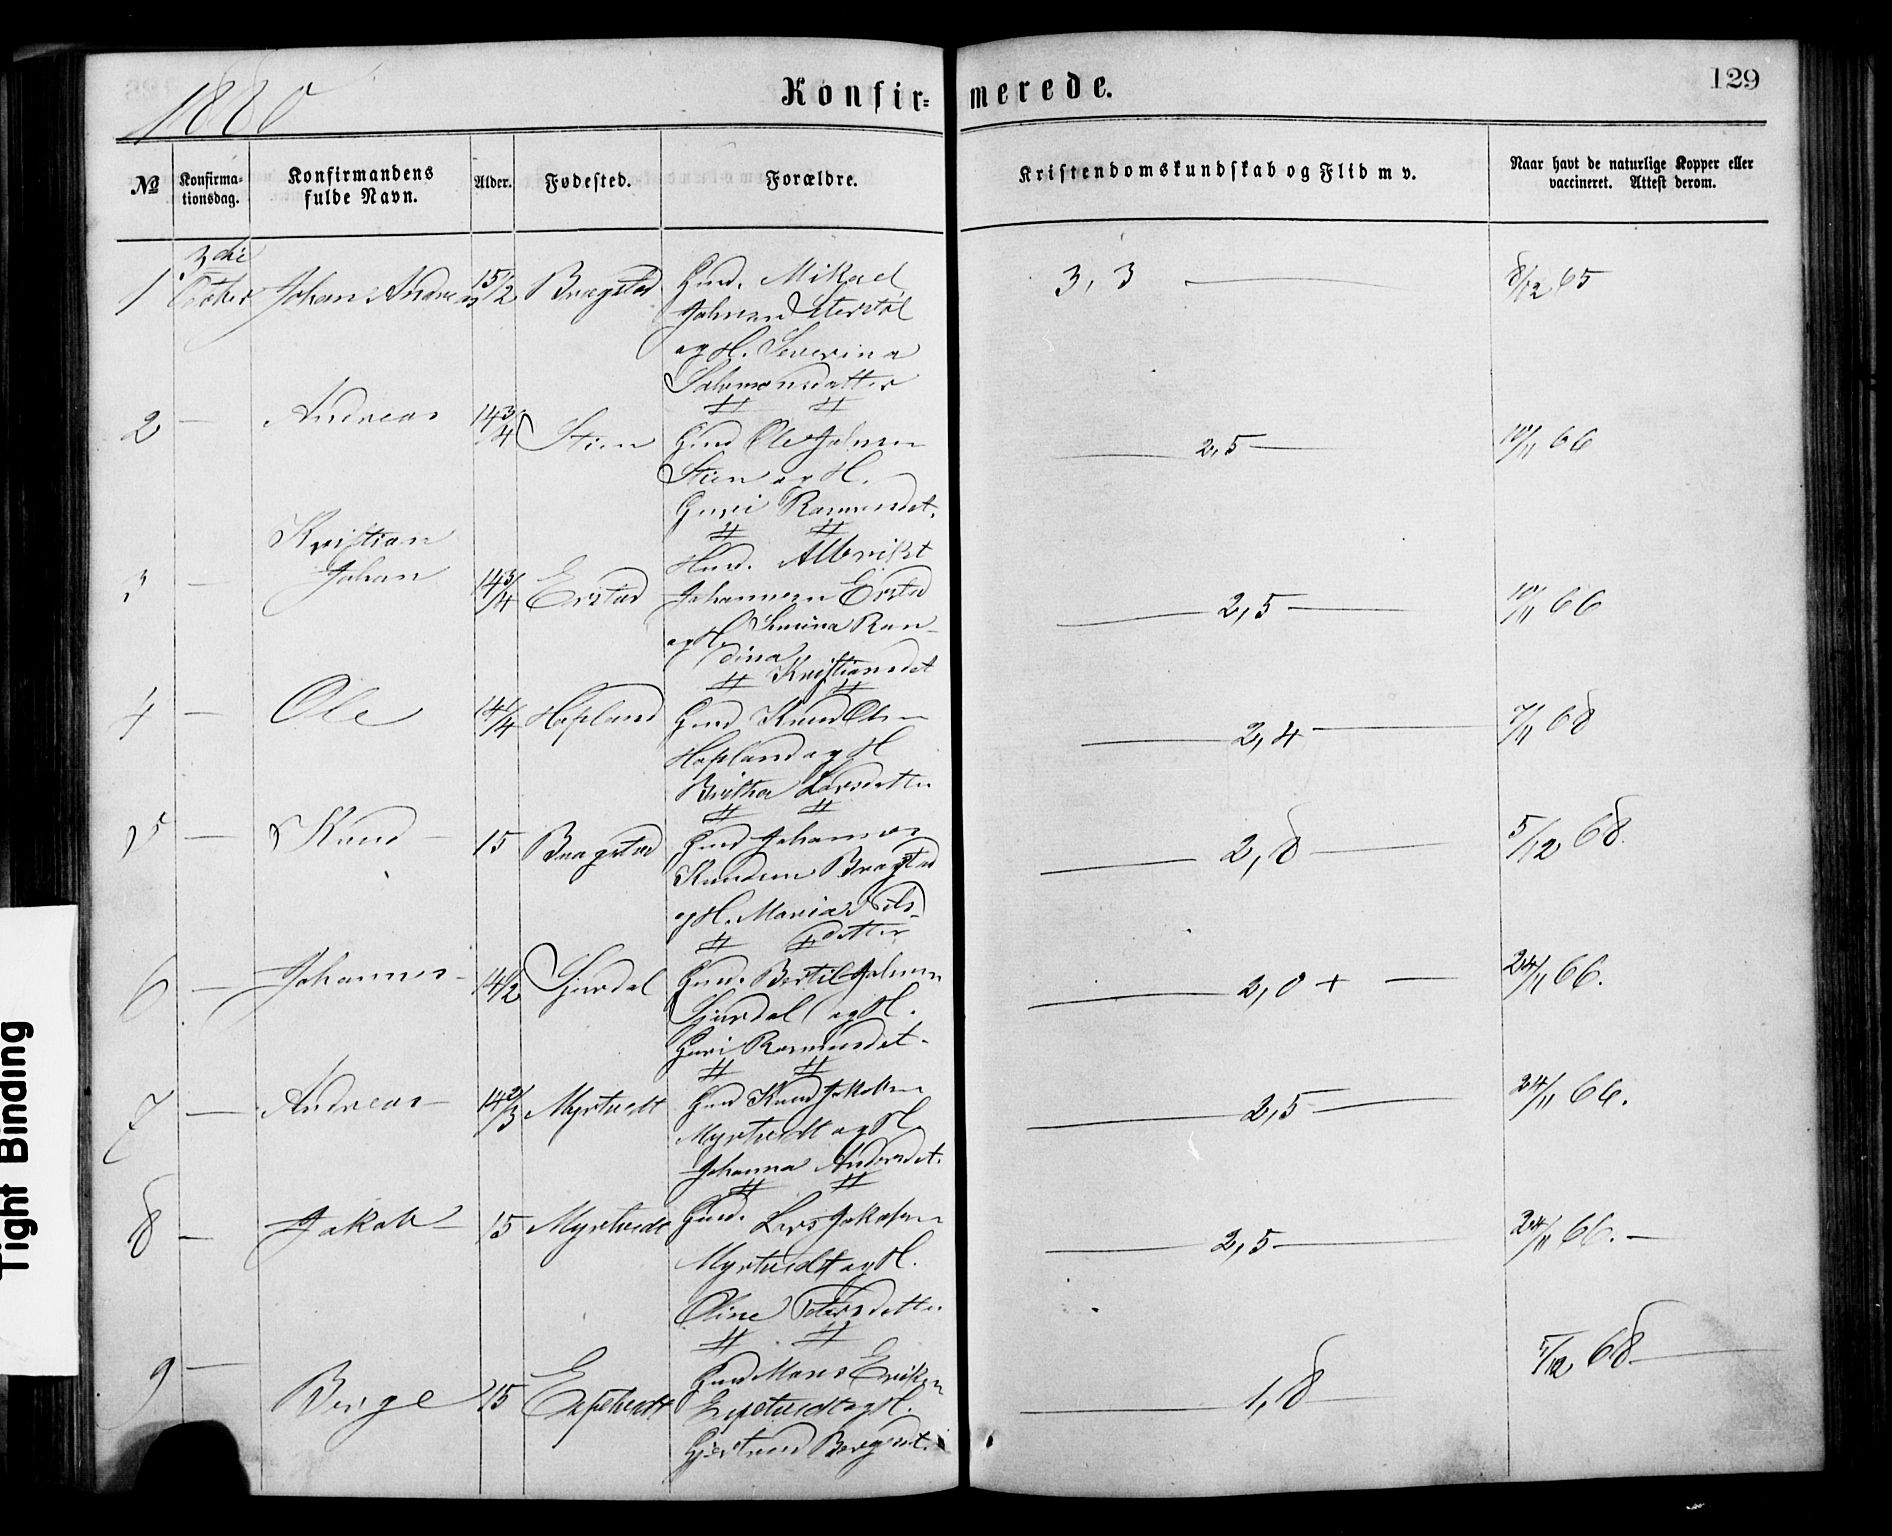 1880
Konfir- merede.
129
№
Konfirma-
tionsdag.
Konfirmandens
fulde Navn.
Alder.
Fødested.
Forældre.
Kristendomskundskab og Flid m v.
Naar havt de naturlige Kopper eller
vaccineret. Attest derom.
1 3die Johan Andreas 15 1/2 Bragstad Gmd. Mikael
Johnsen
og H. Severina
Salomonsdatter
3,3 — 8/12 65
2 — Andreas 14 3/4 Stien Gmd Ole Johnsen
Stien og H.
Guri Rasmusdet.
2,5 — 10/11 66
3 — Kristian
Johan 14 3/4 Erstad Hmd. Albrikt
Johannesen Erstad
og H. Ran-
dina Kristiansdet
2,5 — 10/11 66
4 — Ole 14 1/4 Hopland Gmd Knud Olsen
Hopland og H
Britha Larsdatter
2,4 — 7/11 68
5 — Knud — 15 Bragstad Gmd Johannes
Knudsen Bragstad
og H. Maria Nils-
datter
2,8 — 5/12 68
6 — Johannes — 14 1/2 Gjurdal Gmd. Bertil Johnsen
Gjurdal og H.
Guri Rasmusdet.
2,0 + — 24/11 66.
7 — Andreas — 14 2/3 Myrtvedt Gmd Knud Jakobsen
Myrtvedt og H.
Johanna Andersdet.
2,5 — 24/11 66.
8 — Jakob — 15 Myrtvedt Gmd. Lars Jakobsen
Myrtvedt og H.
Oline Petersdatter
2,5 — 24/11 66. —
9 — Berge 15 Espetvedt Gmd Mons Eriksen
Espetvedt og H.
Gjertrud Bergesdt.
1,8 — 5/12 68 —
Tight Binding